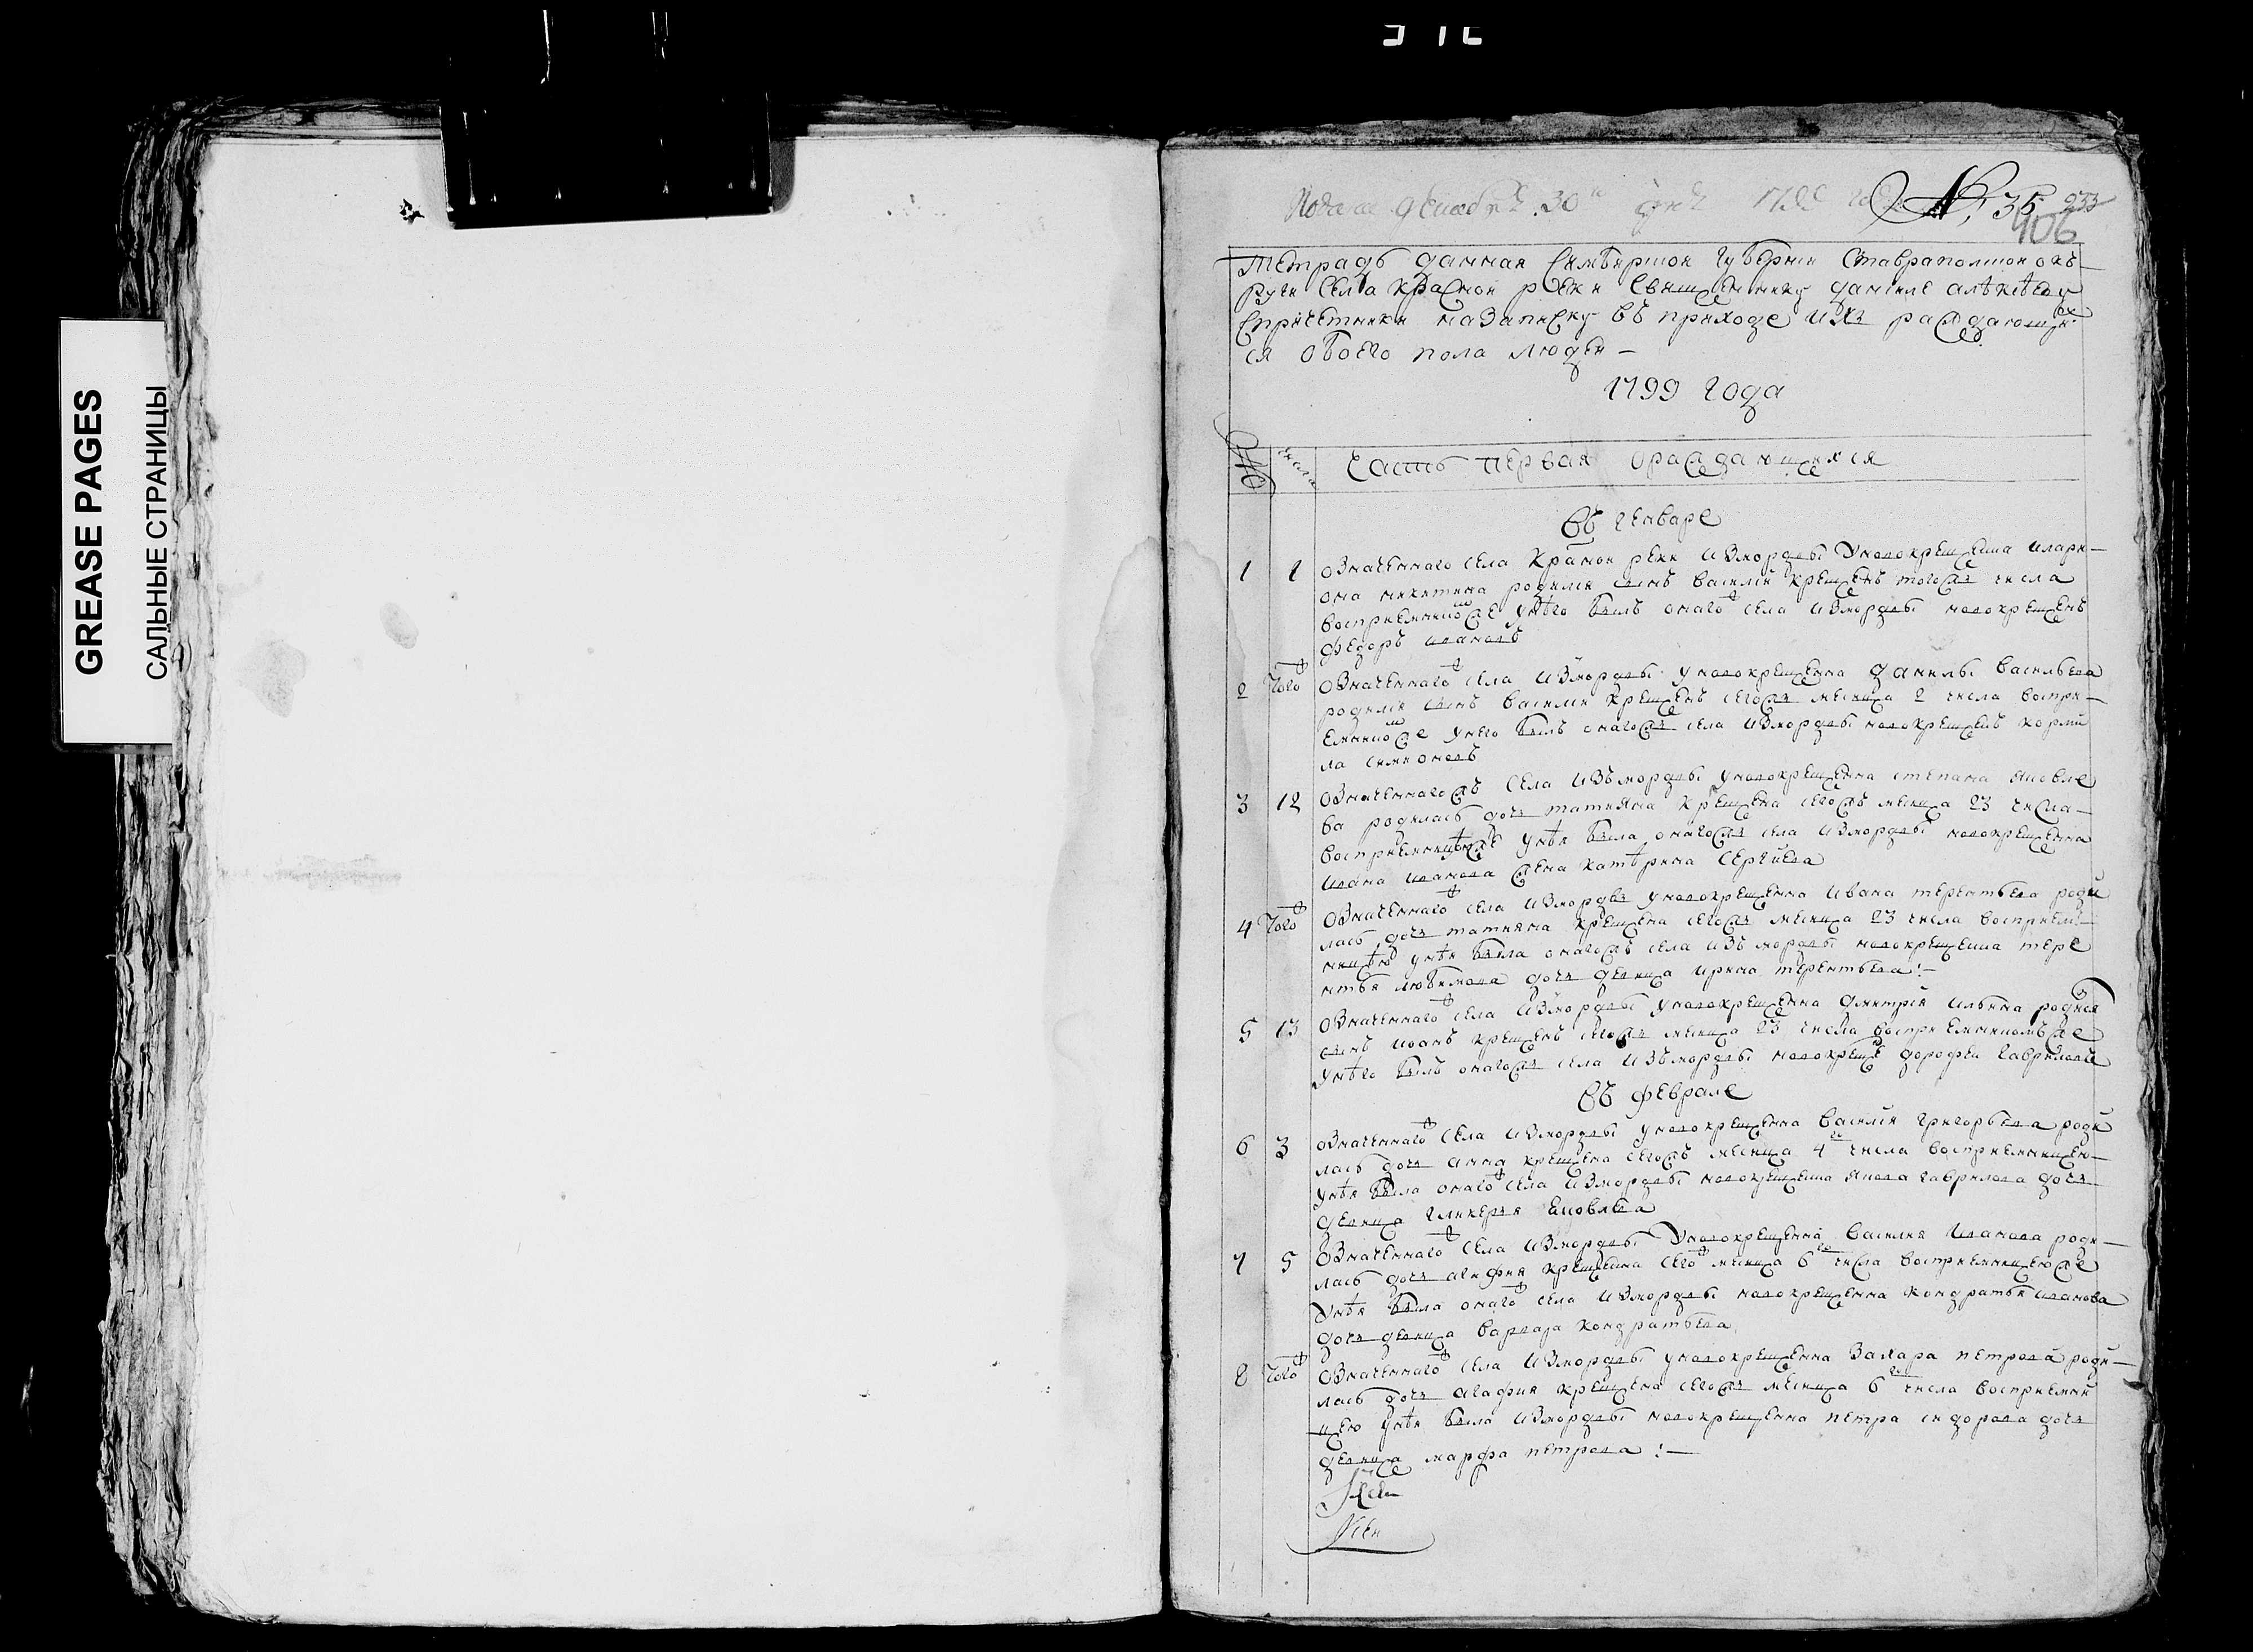 GREASE PAGES
САЛЬНЫЕ СТРАНИЦЫ
30 № 35 233
406
Тетрадь данная Симбирской губернии Ставраполшой окъ-
руги села красной реки священнику данилe алѣкѣеву
спричетники назаписку въ приходе ихъ раждающи
ся обоего пола людей —
1799 года
№ числа Часть первая ораждающихся
въ генваре
1 1 Означеннаго села Крамой реки измордвы Уновокрещена илари-
она никитина родился сынъ василий крещенъ тогожъ числа
восприемникомже унѣго былъ онаго села измордвы новокрещенъ
федоръ ивановъ
2 Того Означеннаго села измордвы уновокрещенна данилы васильева
родился сынъ василий крещенъ сегожъ месяца 2 числа воспри-
емникомже унего былъ онагожъ села измордвы новокрещенъ корни
ла симионовъ
3 12 Означеннагожъ села изъмордвы уновокрещенна степана яковле
ва родилась дочь татияна крещена сегожъ месяца 23 числа —
восприемницѣюже унѣя была онагожъ села измордвы новокрещенна
ивана иванова жена катѣрина Сергиева
4 Того Означеннаго села измордвъ уновокрещенна Ивана терентьева роди
лась дочь татияна крещена сегожъ месяца 23 числа восприем-
ницѣю унѣя была онагожъ села изъ мордвы новокрещенна тере
нтья любимова дочь девица ирина терентьева!—
5 13 Означеннаго села измордвы уновокрещенна дмитрия ильина родился
сынъ иоанъ крещенъ сегожъ месяца 23 числа восприемникомъже
унѣго былъ онагожъ села изъмордвы новокреще дорофеи гавриловъ
въ феврале
6 3 означеннаго села измордвы уновокрещенна василия григорьева роди
лась дочь анна крещена сегожъ месяца 4 го числа восприемницею-
унѣя была онаго села измордвы новокрещенна якова гаврилова дочь
девица гликерия яковлева
7 5 Означеннаго села измордвы Уновокрещенна василия иванова роди-
лась дочь агафия крещенна сего месяца 6 го числа восприемницеюже
Унѣя была онаго села измордвы новокрещенна кондратья иванова
дочь девица варвара кондратьева
8 Того Означеннаго села измордвы уновокрещенна захара петрова роди-
лась дочь агафия крещена сегожъ месяца 6 го числа восприемни
цею унѣя была измордвы новокрещенна петра сидорова дочь
девица марфа петрова !—